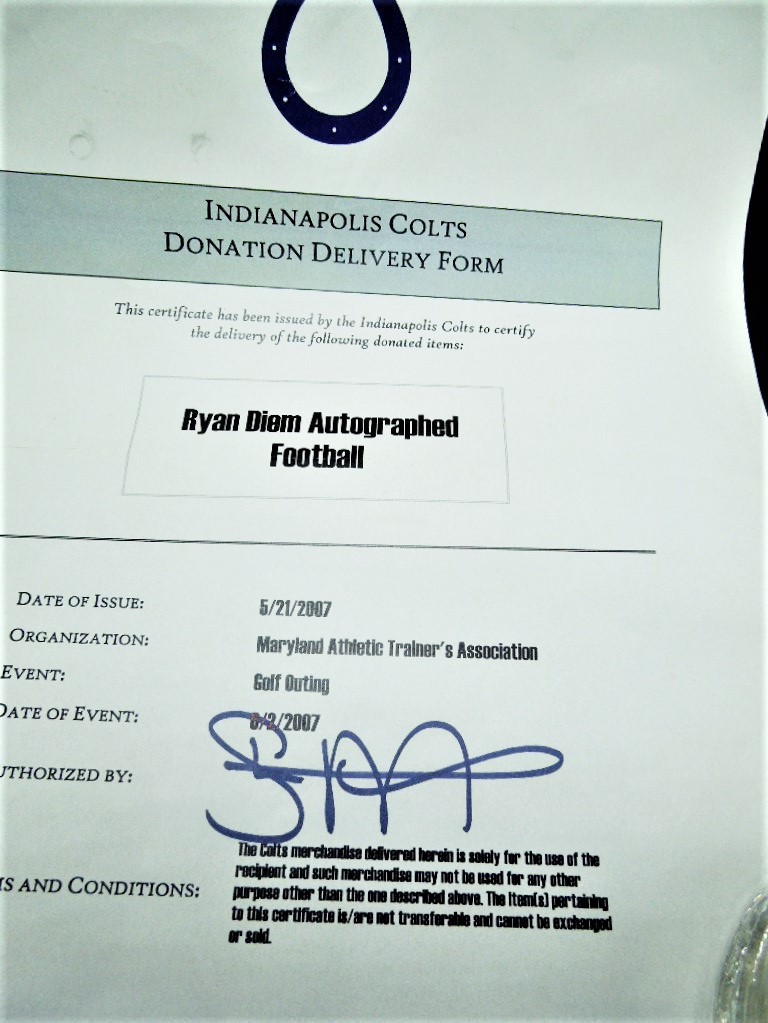 INDIANAPOLIS COLTS
DONATION DELIVERY FORM
This certificate has been issued by the Indianapolis Colts to certify
the delivery of the following donated items:
Ryan Diem Autographed
Football
DATE OF ISSUE: 5/21/2007
ORGANIZATION: Maryland Athletic Trainer's Association
EVENT: Golf Outing
DATE OF EVENT: /2/2007
UTHORIZED BY:
The Colts merchandise delivered herein is solely for the use of the
recipient and such merchandise may not be used for any other
S AND CONDITIONS: purpose other than the one described above. The Item(s) pertaining
to this certificate is/are not transferable and cannot be exchanged
or sold.